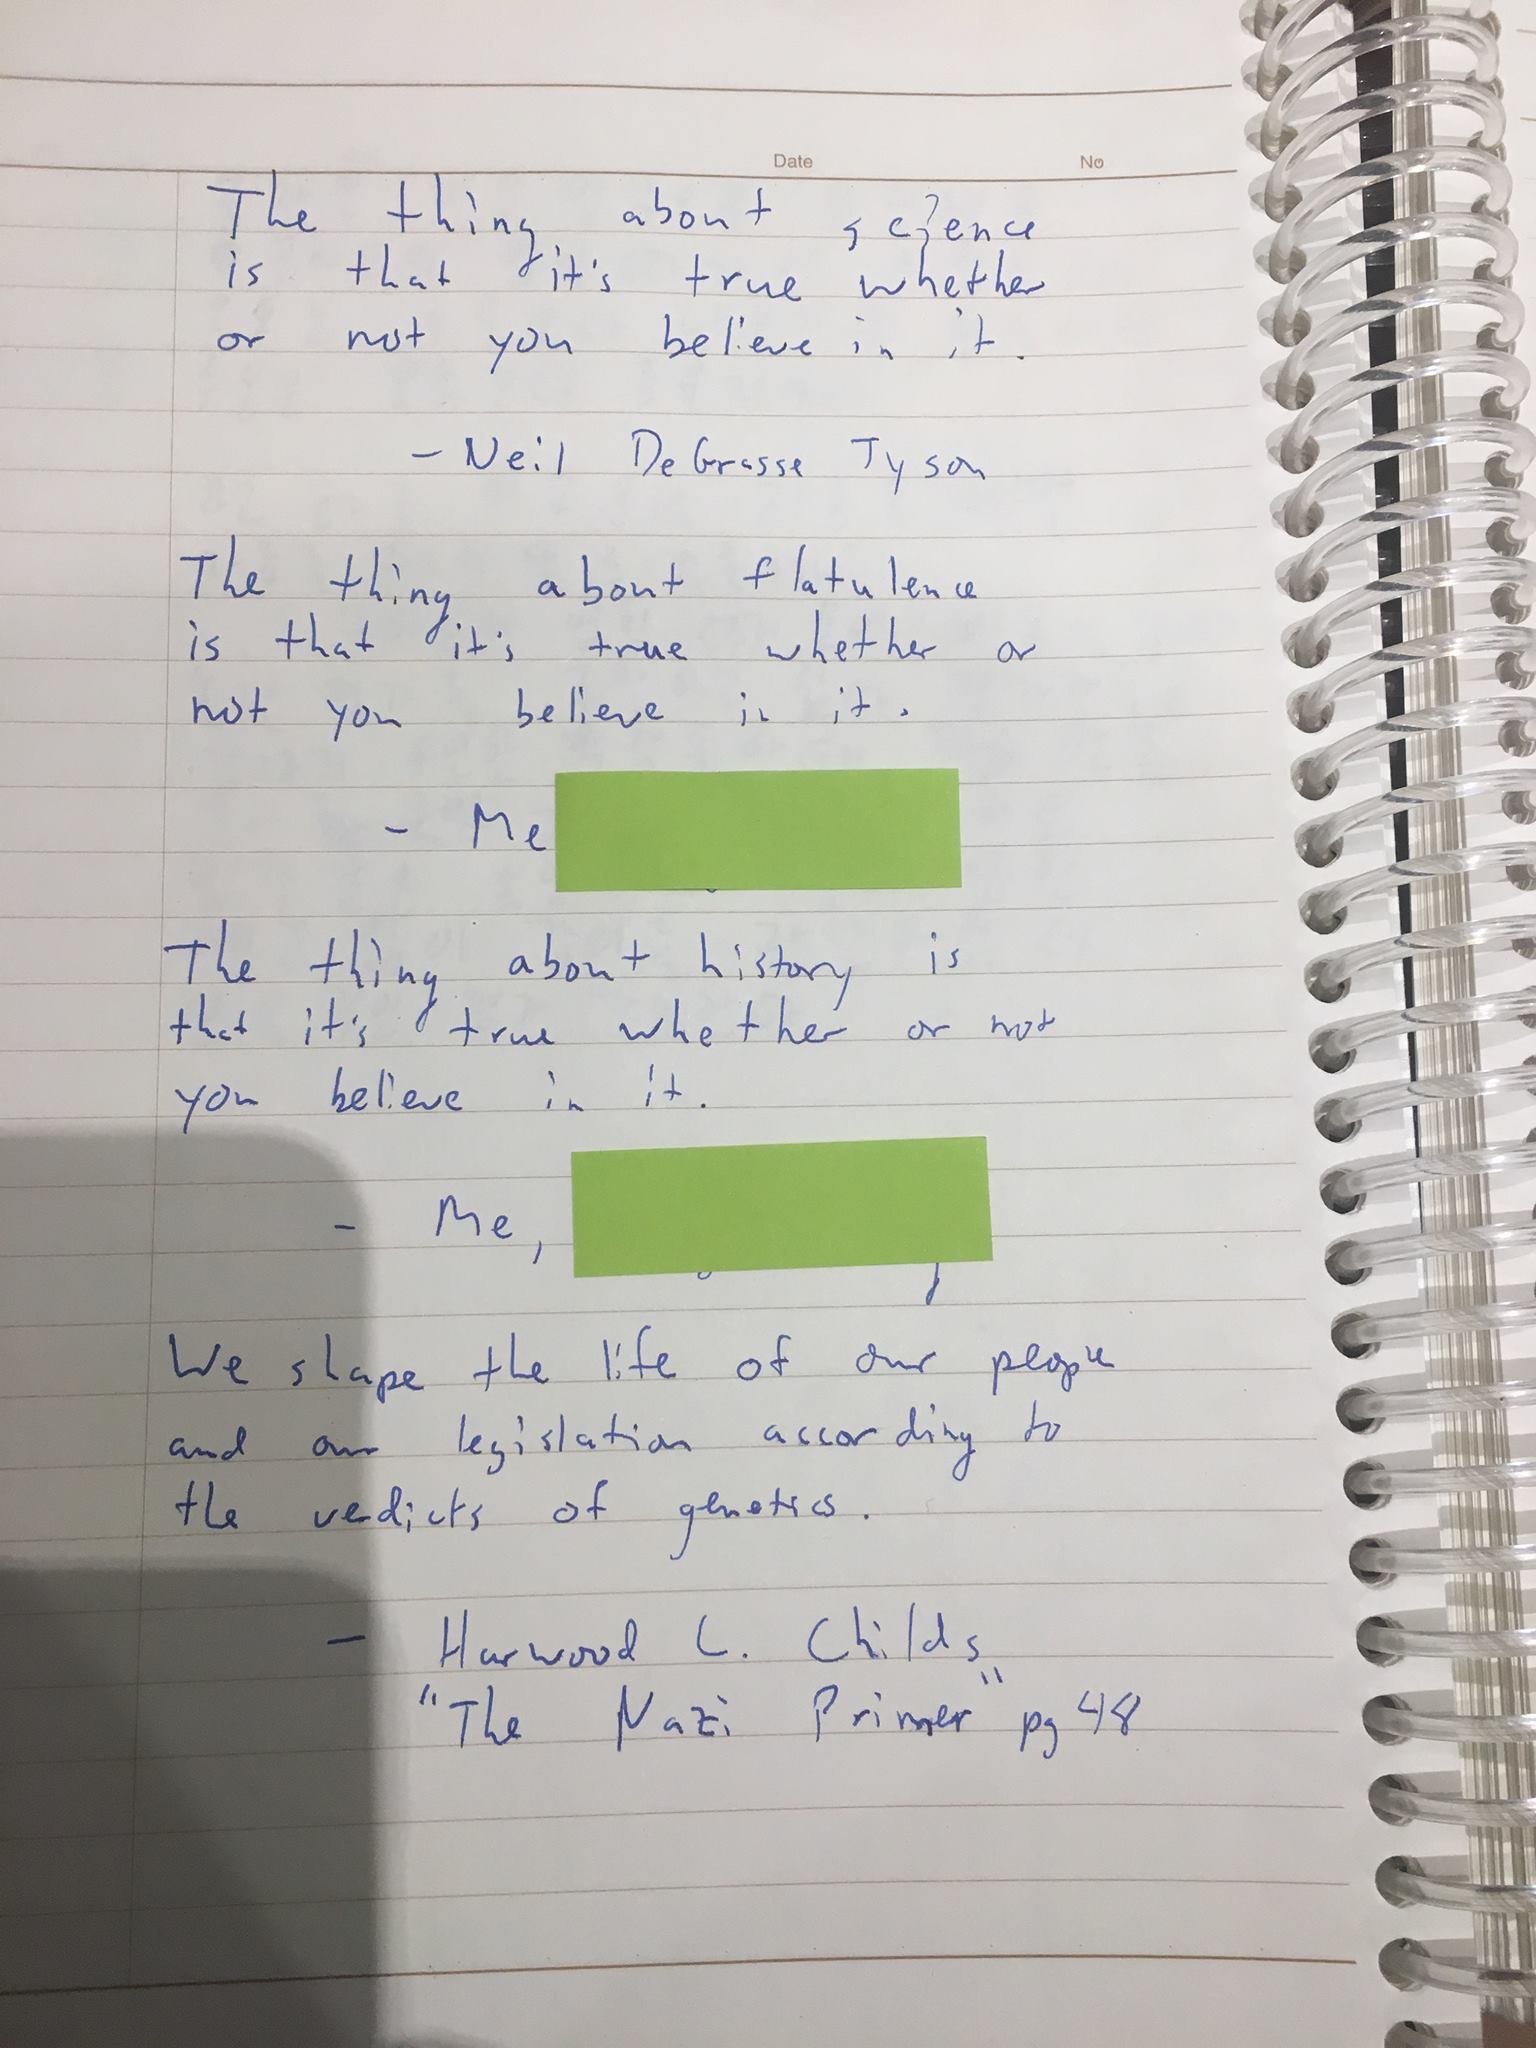 Date No
The thing about science
is that it's true whether
or not you believe in it.
- Neil DeGrasse Tyson
The thing about flatulence
is that it's true whether or
not you believe in it.
- Me
The thing about history is
that it's true whether or not
you believe in it.
- Me,
We shape the life of our people
and our legislation according to
the verdicts of genetics.
- Harwood L. Childs
"The Nazi Primer" pg 48